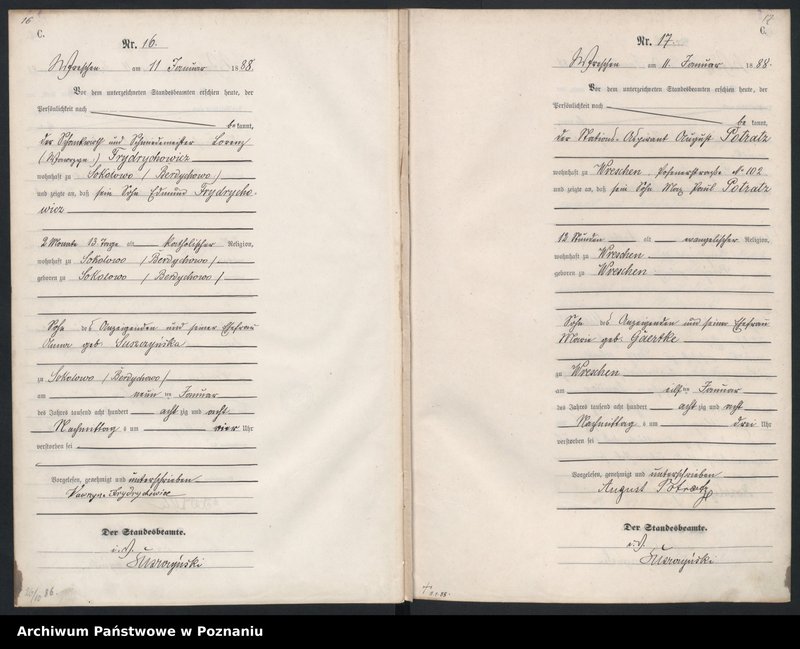 16
C.
Nr. 16.
Wreschen am 11 Januar 1888.
Vor dem unterzeichneten Standesbeamten erschien heute, der
Persönlichkeit nach
be kannt,
der Schankwirth und Schneidemeister Lorenz
(Wawrzyn) Frydrychowicz
wohnhaft zu Sokolowo / Berdychowo /
und zeigte an, daß sein Sohn Edmund Frydrycho-
wicz
2 Monate 13 Tage alt katholischer Religion,
wohnhaft zu Sokolowo / Berdychowo /
geboren zu Sokolowo / Berdychowo /
Sohn des Anzeigenden und seiner Ehefrau
Anna geb.
zu Sokolowo / Berdychowo /
am neun ten Januar
des Jahres tausend acht hundert acht zig und acht
Nachmittag s um vier Uhr
verstorben sei
Vorgelesen, genehmigt und unterschrieben
Wawrzyn Frydrychowicz
Der Standesbeamte.
i. V.
17
C.
Nr. 17.
Wreschen am 11. Januar 1888.
Vor dem unterzeichneten Standesbeamten erschien heute, der
Persönlichkeit nach
be kannt,
der Stations-Aspirant August Potratz
wohnhaft zu Wreschen, Posenerstraße No 102
und zeigte an, daß sein Sohn Max Paul Potratz
12 Stunden alt evangelischer Religion,
wohnhaft zu Wreschen
geboren zu Wreschen
Sohn des Anzeigenden und seiner Ehefrau
Marie geb. Gaertke
zu Wreschen
am elf ten Januar
des Jahres tausend acht hundert acht zig und acht
Nachmittag s um drei Uhr
verstorben sei
Vorgelesen, genehmigt und unterschrieben
August Potratz
Der Standesbeamte.
i. V.
Archiwum Państwowe w Poznaniu